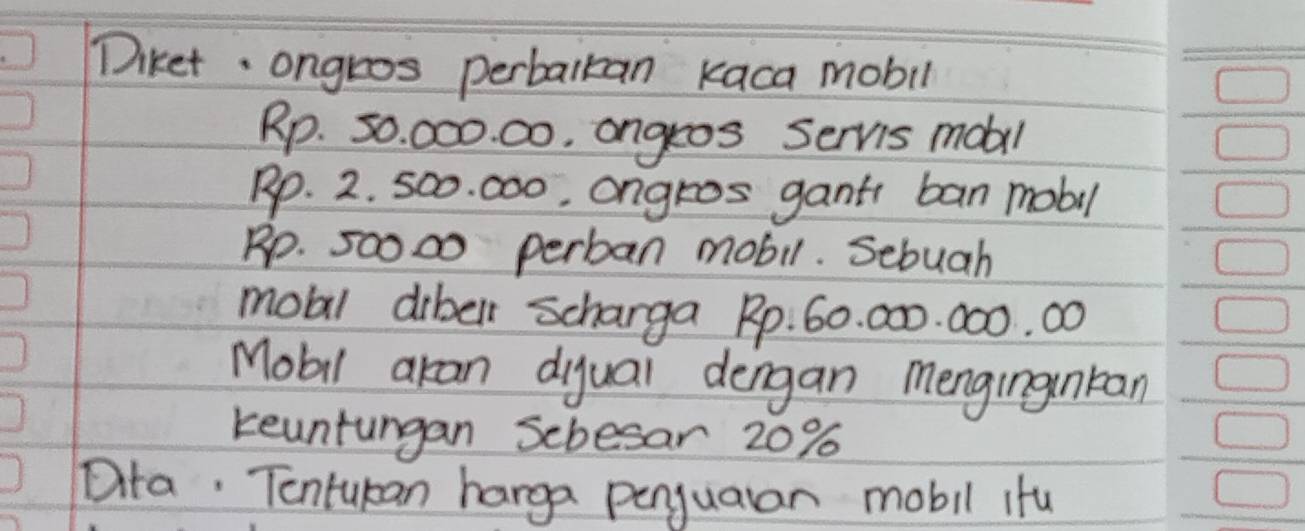 Diket . ongkos perbaikan kaca mobil
Rp. 50.000.00. ongkos servis mobil
Rp. 2.500.000. ongkos ganti ban mobil
Rp. 500 00 perban mobil. Sebuah
mobil dibeli seharga Rp.60.000.000.00
Mobil akan dijual dengan menginginkan
keuntungan sebesar 20%
Dita . Tentukan harga penjualan mobil itu